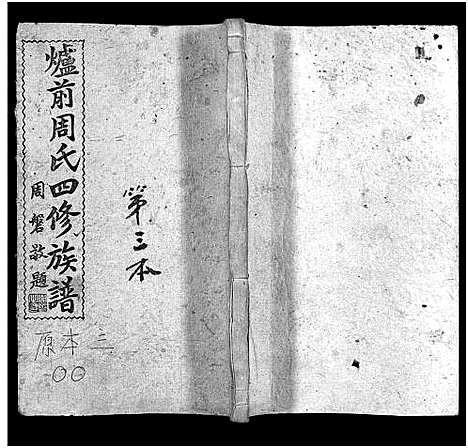 爐前周氏四修族譜
周磐敬題
第三本
原本三
00